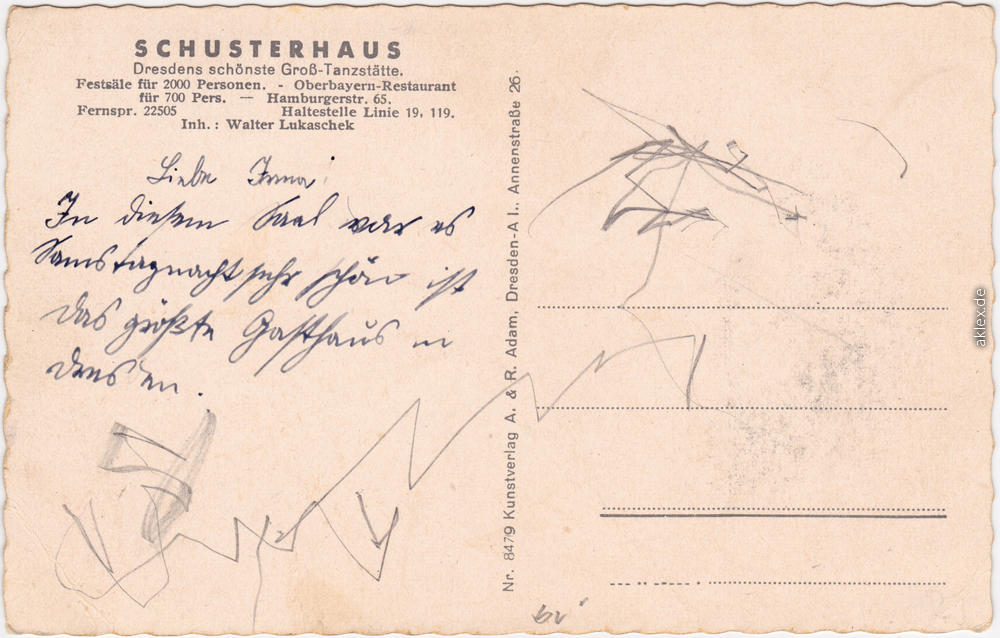 SCHUSTERHAUS
Dresdens schönste Groß-Tanzstätte.
Festsäle für 2000 Personen. - Oberbayern-Restaurant
für 700 Pers. — Hamburgerstr. 65.
Fernspr. 22505 Haltestelle Linie 19, 119.
Inh.: Walter Lukaschek
Liebe Irma!
In diesem Saal war es
Samstagnacht sehr schön ist
das größte Gasthaus in
Dresden.
Nr. 8479 Kunstverlag A. & R. Adam, Dresden-A 1., Annenstraße 26.
aklex.de